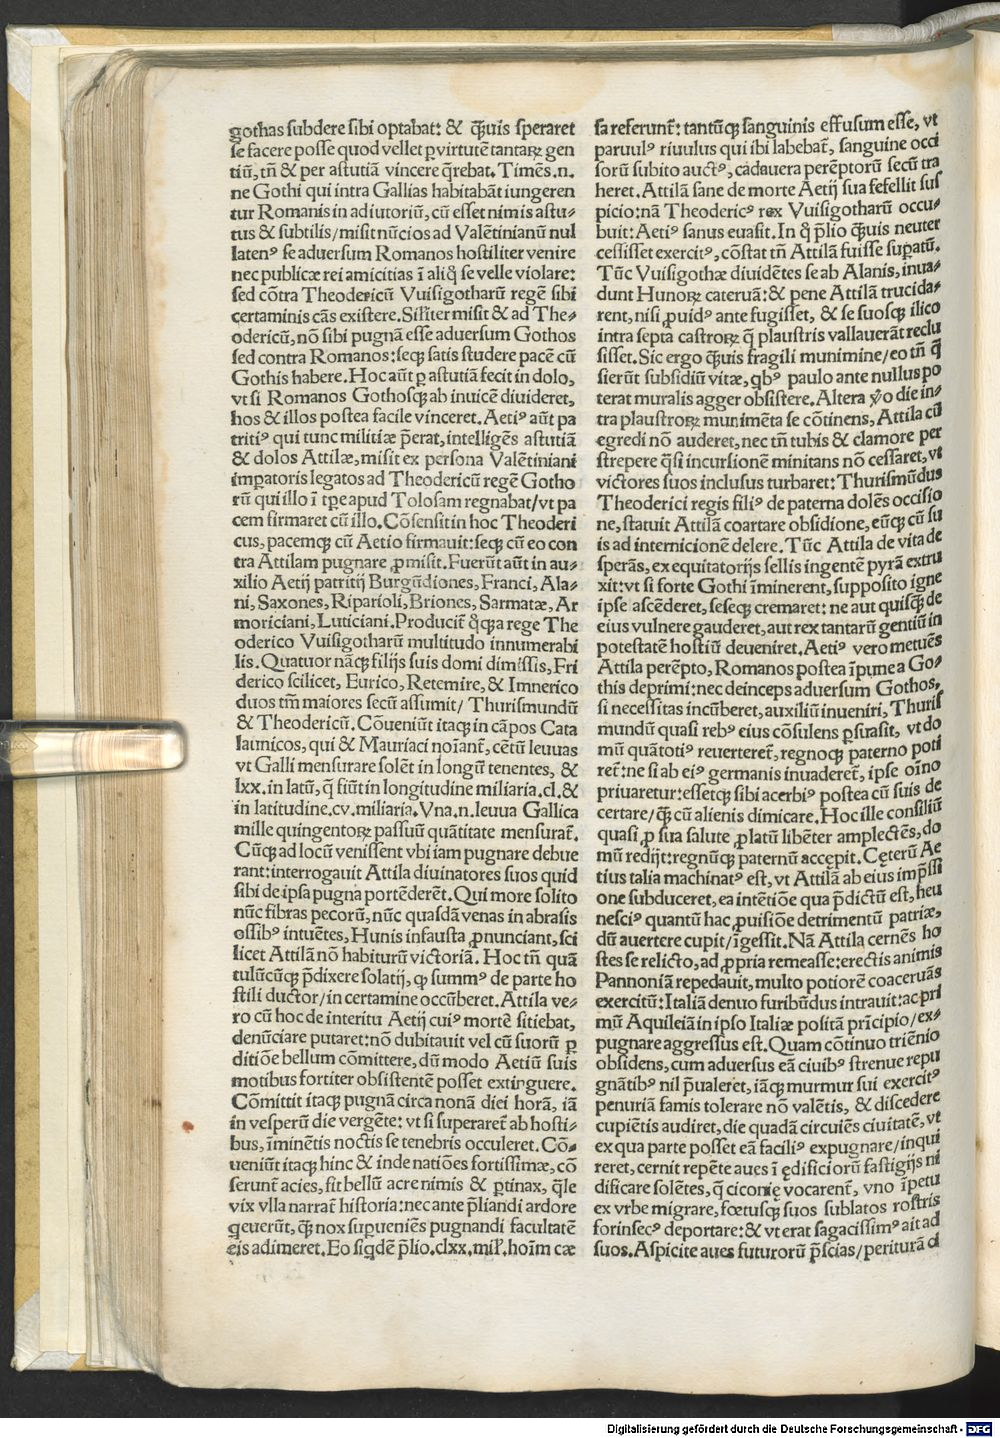 gothas subdere sibi optabat: & q̃uis speraret
se facere posse quod vellet ꝑ virtutē tantaꝝ gen
tiū, tñ & per astutiā vincere q̄rebat. Timēs.n.
ne Gothi qui intra Gallias habitabāt iungeren
tur Romanis in adiutoriū, cū esset nimis astu⸗
tus & subtilis/ misit nūcios ad Valētinianū nul
latenꝰ se aduersum Romanos hostiliter venire
nec publicæ rei amicitias ī aliq̊ se velle violare:
sed cōtra Theodericū Vuisigotharū regē sibi
certaminis cās existere. Sil'iter misit & ad The⸗
odericū, nō sibi pugnā esse aduersum Gothos
sed contra Romanos: seqꝫ satis studere pacē cū
Gothis habere. Hoc aūt ꝑ astutiā fecit in dolo,
vt si Romanos Gothosqꝫ ab inuicē diuideret,
hos & illos postea facile vinceret. Aetiꝰ aūt pa
tritiꝰ qui tunc militiæ p̄erat, intelligēs astutiā
& dolos Attilæ, misit ex persona Valētiniani
imꝑatoris legatos ad Theodericū regē Gotho
rū qui illo ī tꝑe apud Tolosam regnabat/ vt pa
cem firmaret cū illo. Cōsensit in hoc Theoderi
cus, pacemqꝫ cū Aetio firmauit: seqꝫ cū eo con
tra Attilam pugnare ꝓmisit. Fuerūt aūt in au⸗
xilio Aetij patritij Burgūdiones, Franci, Ala⸗
ni, Saxones, Riparioli, Briones, Sarmatæ, Ar
moriciani, Luticiani. Producit̄ q̊qꝫ a rege The
oderico Vuisigotharū multitudo innumerabi
lis. Quatuor nāqꝫ filijs suis domi dimissis, Fri
derico scilicet, Eurico, Retemire, & Imnerico
duos tm̄ maiores secū assumit/ Thurismundū
& Theodericū. Cōueniūt itaqꝫ in cāpos Cata
launicos, qui & Mauriaci noīant̄, cētū leuuas
vt Galli mensurare solēt in longū tenentes, &
lxx. in latū, q̄ fiūt in longitudine miliaria.cl. &
in latitudine.cv. miliaria. Vna.n. leuua Gallica
mille quingentoꝝ passuū quātitate mensurat̄.
Cūqꝫ ad locū venissent vbi iam pugnare debue
rant: interrogauit Attila diuinatores suos quid
sibi de ipsa pugna portēderēt. Qui more solito
nūc fibras pecorū, nūc quasdā venas in abrasis
ossibꝰ intuētes, Hunis infausta ꝓnunciant, sci
licet Attilā nō habiturū victoriā. Hoc tñ quā
tulūcūqꝫ p̄dixere solatij, ꝙ summꝰ de parte ho
stili ductor/ in certamine occūberet. Attila ve⸗
ro cū hoc de interitu Aetij cuiꝰ mortē sitiebat,
denūciare putaret: nō dubitauit vel cū suorū ꝑ
ditiōe bellum cōmittere, dū modo Aetiū suis
motibus fortiter obsistentē posset extinguere.
Cōmittit itaqꝫ pugnā circa nonā diei horā, iā
in vesperū die vergēte: vt si superaret̄ ab hosti⸗
bus, īminētis noctis se tenebris occuleret. Cō⸗
ueniūt itaqꝫ hinc & inde natiōes fortissimæ, cō
serunt acies, fit bellū acre nimis & ꝑtinax, q̄le
vix vlla narrat̄ historia: nec ante p̄liandi ardore
q̇euerūt, q̃ꝫ nox supueniēs pugnandi facultatē
eis adimeret. Eo siq̇dē p̄lio.clxx. mil'. hoīm cæ
sa referunt̄: tantūqꝫ sanguinis effusum esse, vt
paruulꝰ riuulus qui ibi labebat̄, sanguine occi
sorū subito auctꝰ, cadauera perēptorū secū tra
heret. Attilā sane de morte Aetij sua fefellit sus
picio: nā Theodericꝰ rex Vuisigotharū occu⸗
buit: Aetiꝰ sanus euasit. In q̊ p̄lio q̃uis neuter
cessisset exercitꝰ, cōstat tñ Attilā fuisse supatū.
Tūc Vuisigothæ diuidētes se ab Alanis, inua⸗
dunt Hunoꝝ cateruā: & pene Attilā trucida⸗
rent, nisi ꝓuidꝰ ante fugisset, & se suosqꝫ ilico
intra septa castroꝝ q̄ plaustris vallauerāt reclu
sisset. Sic ergo q̃uis fragili munimine/ eo tñ q̄
sierūt subsidiū vitæ, qbꝰ paulo ante nullus po
terat muralis agger obsistere. Altera v̊o die in⸗
tra plaustroꝝ munimēta se cōtinens, Attila cū
egredi nō auderet, nec tñ tubis & clamore per
strepere q̄si incursionē minitans nō cessaret, vt
victores suos inclusus turbaret: Thurismūdus
Theoderici regis filiꝰ de paterna dolēs occisio
ne, statuit Attilā coartare obsidione, eūqꝫ cū su
is ad internicionē delere. Tūc Attila de vita de
sperās, ex equitatorijs sellis ingentē pyrā extru
xit: vt si forte Gothi īminerent, supposito igne
ipse ascēderet, seseqꝫ cremaret: ne aut quisq̄ de
eius vulnere gauderet, aut rex tantarū gentiū in
potestatē hostiū deueniret. Aetiꝰ vero metuēs
Attila perēpto, Romanos postea īpune a Go⸗
this deprimi: nec deinceps aduersum Gothos,
si necessitas incūberet, auxiliū inueniri, Thuris
mundū quasi rebꝰ eius cōsulens ꝑsuasit, vt do
mū quātotiꝰ reuerteret̄, regnoqꝫ paterno poti
ret̄: ne si ab eiꝰ germanis inuaderet̄, ipse oīno
priuaretur: essetqꝫ sibi acerbiꝰ postea cū suis de
certare/ q̃ꝫ cū alienis dimicare. Hoc ille consiliū
quasi ꝓ sua salute ꝓlatū libēter amplectēs, do
mū redijt: regnūqꝫ paternū accepit. Cęterū Ae
tius talia machinatꝰ est, vt Attilā ab eius imp̄ssi
one subduceret, ea intētiōe qua p̄dictū est, heu
nesciꝰ quantū hac ꝓuisiōe detrimentū patriæ,
dū auertere cupit/ īgessit. Nā Attila cernēs ho
stes se relicto, ad ꝓpria remeasse: erectis animis
Pannoniā repedauit, multo potiorē coaceruās
exercitū: Italiā denuo furibūdus intrauit: ac pri
mū Aquileiā in ipso Italiæ positā prīcipio/ ex⸗
pugnare aggressus est. Quam cōtinuo triēnio
obsidens, cum aduersus eā ciuibꝰ strenue repu
gnātibꝰ nil p̄ualeret, iāqꝫ murmur sui exercitꝰ
penuriā famis tolerare nō valētis, & discedere
cupiētis audiret, die quadā circuiēs ciuitatē, vt
ex qua parte posset eā faciliꝰ expugnare/ inqui
reret, cernit repēte aues ī ędificiorū fastigijs ni
dificare solētes, q̄ ciconię vocarent̄, vno īpetu
ex vrbe migrare, fœtusqꝫ suos sublatos rostris
forinsecꝰ deportare: & vt erat sagacissimꝰ ait ad
suos. Aspicite aues futurorū p̄scias/ periturā ci
Digitalisierung gefördert durch die Deutsche Forschungsgemeinschaft - DFG